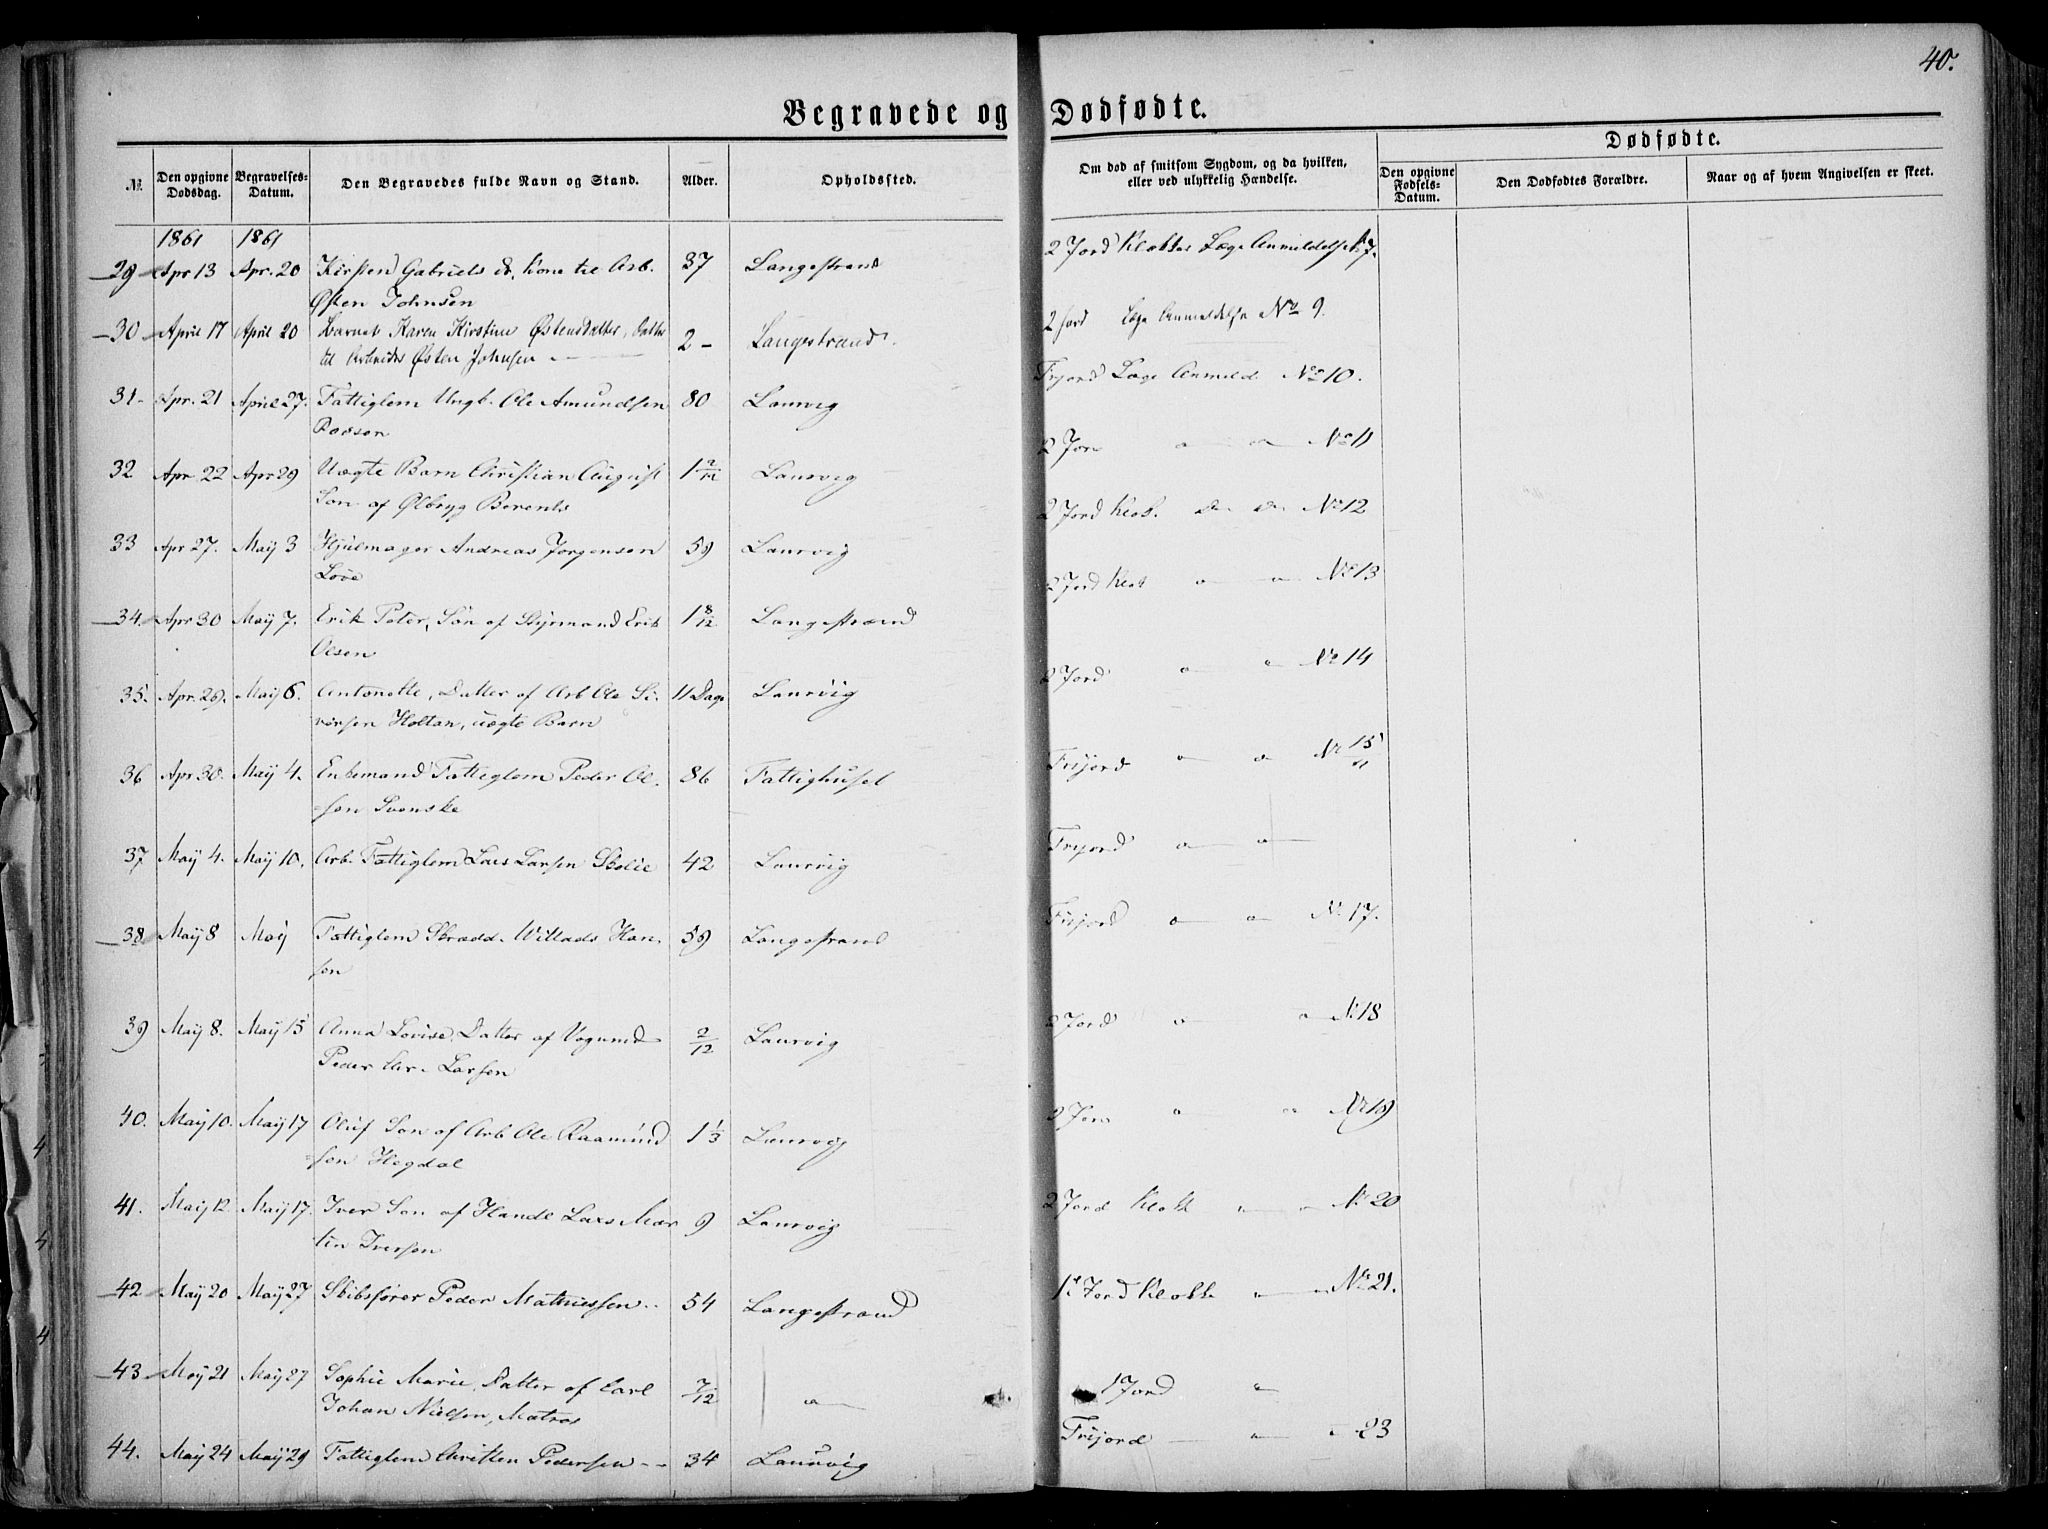 40.
Begravede og Dødfødte.
Dødfødte.
№.
Den opgivne Dødsdag.
Begravelses-Datum.
Den Begravedes fulde Navn og Stand.
Alder.
Opholdssted.
Om død af smitsom Sygdom, og da hvilken, eller ved ulykkelig Hændelse.
Den opgivne Fødsels-Datum.
Den Dødfødtes Forældre.
Naar og af hvem Angivelsen er skeet.
1861 1861
29 Apr 13 Apr. 20 Kirsten Gabriels d. Kone til Arb. 37 Langestrand 2 Jord Klokker Læge Anmeldelse 7.
Østen Johnsen
30 April 17 April 20 Barnet Karen Kirstine Østensdatter, Datter 2 - Langestrand. 2 Jord Læge Anmeldelse No 9.
til Arbeider Østen Johnsen
31- Apr. 21 April 27. Fattiglem Ungk. Ole Amundsen 80 Laurvig Frijord Læge Anmeld No 10.
32 Apr 22 Apr 29 Uægte Barn Christian August 1 2/12 Laurvig 2 Jord " " No 11
Søn af Berents
33 Apr 27. May 3 Hjulmager Andreas Jørgensen 59 Laurvig 2 Jord Klok. Do Do No 12
Løve
34. Apr 30 May 7. Erik Peter, Søn af Styrmand Erik 1 8/12 Langestrand 2 Jord Klok " " No 13
Olsen
35. Apr. 29. May 6. Antonette, Datter af Arb Ole Si- 11 Dage Laurvig 2 Jord " " No 14
versen Holtan, uægte Barn
36 Apr 30. May 4. Enkemand Fattiglem Peder Ol- 86 Fattighuset Frijord " " No 15
sen Svenske
37 May 4. May 10. Arb. Fattiglem Lars Larsen Skolie 42 Laurvig Frijord " "
38 May 8 May Fattiglem Skrædd. Willads Han- 59 Langestrand Frijord " " No 17.
sen
39 May 8. May 15 Anna Lovise, Datter af Vognmd 2/12 Laurvig 2 Jord " " No 18
Peder Chr. Larsen
40. May 10. May 17 Oluf Søn af Arb Ole Raamund 1 1/3 Laurvig 2 Jord " " No 19
sen Hegdal
41. May 12 May 17. Iver Søn af Handl Lars Mar 9 Laurvig 2 Jord Klokk " " No 20
tin Iversen
42 May 20 May 27 Skibsfører Peder Mathiessen 54 Langestrand 1 Jord Klokk " " No 21.
43 May 21 May 27 Sophie Marie, Datter af Carl 7/12 " 1 Jord "
Johan Nielsen, Matros
44. May 24 May 29 Fattiglem Christen Pedersen 34 Laurvig Frijord " " 23